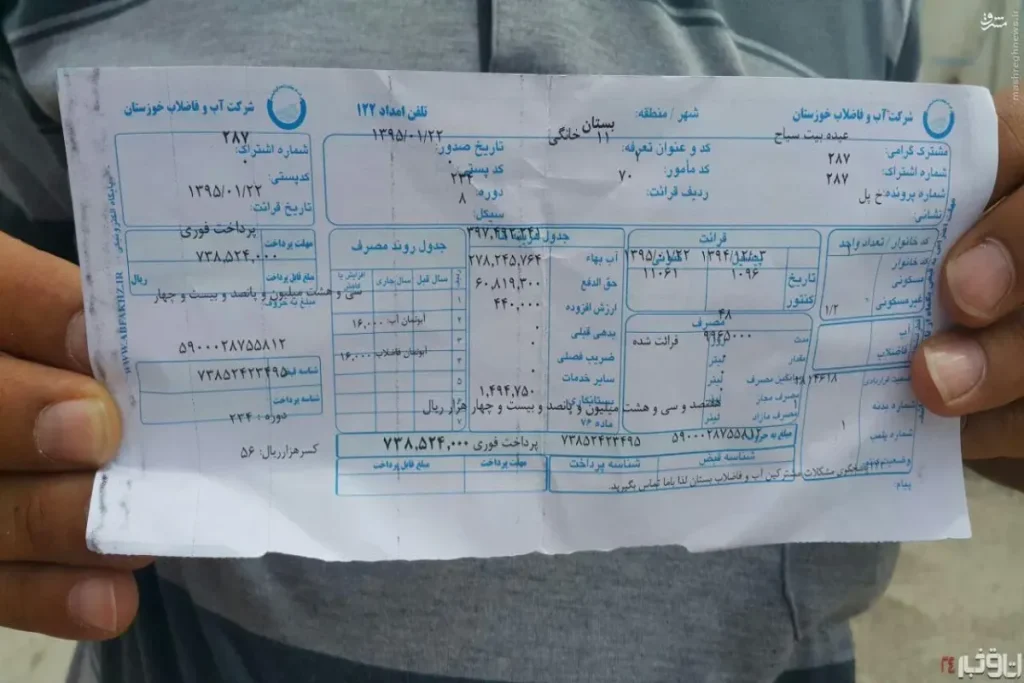 مشرق
mashreghnews.ir
شرکت آب و فاضلاب خوزستان
عبده بیت سیاح
مشترک گرامی:
شماره اشتراک: ۲۸۷
شماره پرونده: ۲۸۷
نشانی: خ پل
شهر / منطقه: بستان
کد و عنوان تعرفه: ۱۱ خانگی
کد مامور:
ردیف قرائت: ۷۰
تلفن امداد ۱۲۲
تاریخ صدور: ۱۳۹۵/۰۱/۲۲
کد پستی: ۰
دوره: ۲۳۴
سیکل: ۸
شرکت آب و فاضلاب خوزستان
شماره اشتراک: ۲۸۷
کدپستی: ۰
تاریخ قرائت: ۱۳۹۵/۰۱/۲۲
پرداخت فوری
مهلت پرداخت
۷۳۸,۵۲۴,۰۰۰
مبلغ قابل پرداخت
ریال
سی و هشت میلیون و پانصد و بیست و چهار
مبلغ به حروف:
۵۹۰۰۰۲۸۷۵۵۸۱۲
شناسه قبض
۷۳۸۵۲۴۲۳۴۹۵
شناسه پرداخت
دوره : ۲۳۴
کسرهزارریال: ۵۶
WWW.ABFAKHZ.IR
کد خانوار / تعداد واحد
کد خانوار
مسکونی
غیرمسکونی
۱/۲
آب
فاضلاب
شماره بدنه
شماره پلمب
۱
پیام:
قرائت
۱۳۹۵/۰۱/۲۲
تاریخ
۱۱۰۶۱ ۱۰۹۶
کنتور
مصرف
۴۸
مدت
۹۹۶۵۰۰۰
مقدار
قرائت شده
میانگین مصرف
مصرف مجاز
مصرف مازاد
لیتر
۳۹۷,۴۱۲,۲۴۱
آب بهاء ۲۷۸,۲۴۵,۷۶۴
حق الدفع ۶۰,۸۱۹,۳۰۰
ارزش افزوده ۴۴۰,۰۰۰
بدهی قبلی ۰
ضریب فصلی
سایر خدمات ۰
بستانکاری ۱,۴۹۴,۷۵۰
ماده ۷۶
هفتصد و سی و هشت میلیون و پانصد و بیست و چهار هزار ریال
جدول روند مصرف
سال قبل
سال جاری
آبونمان آب ۱۶,۰۰۰
آبونمان فاضلاب ۱۶,۰۰۰
مبلغ به حروف
۵۹۰۰۰۲۸۷۵۵۸۱۲
۷۳۸۵۲۴۲۳۴۹۵
پرداخت فوری ۷۳۸,۵۲۴,۰۰۰
شناسه قبض
شناسه پرداخت
مهلت پرداخت
مبلغ قابل پرداخت
پاسخگوی مشکلات مشترکین آب و فاضلاب بستان لذا باما تماس بگیرید.